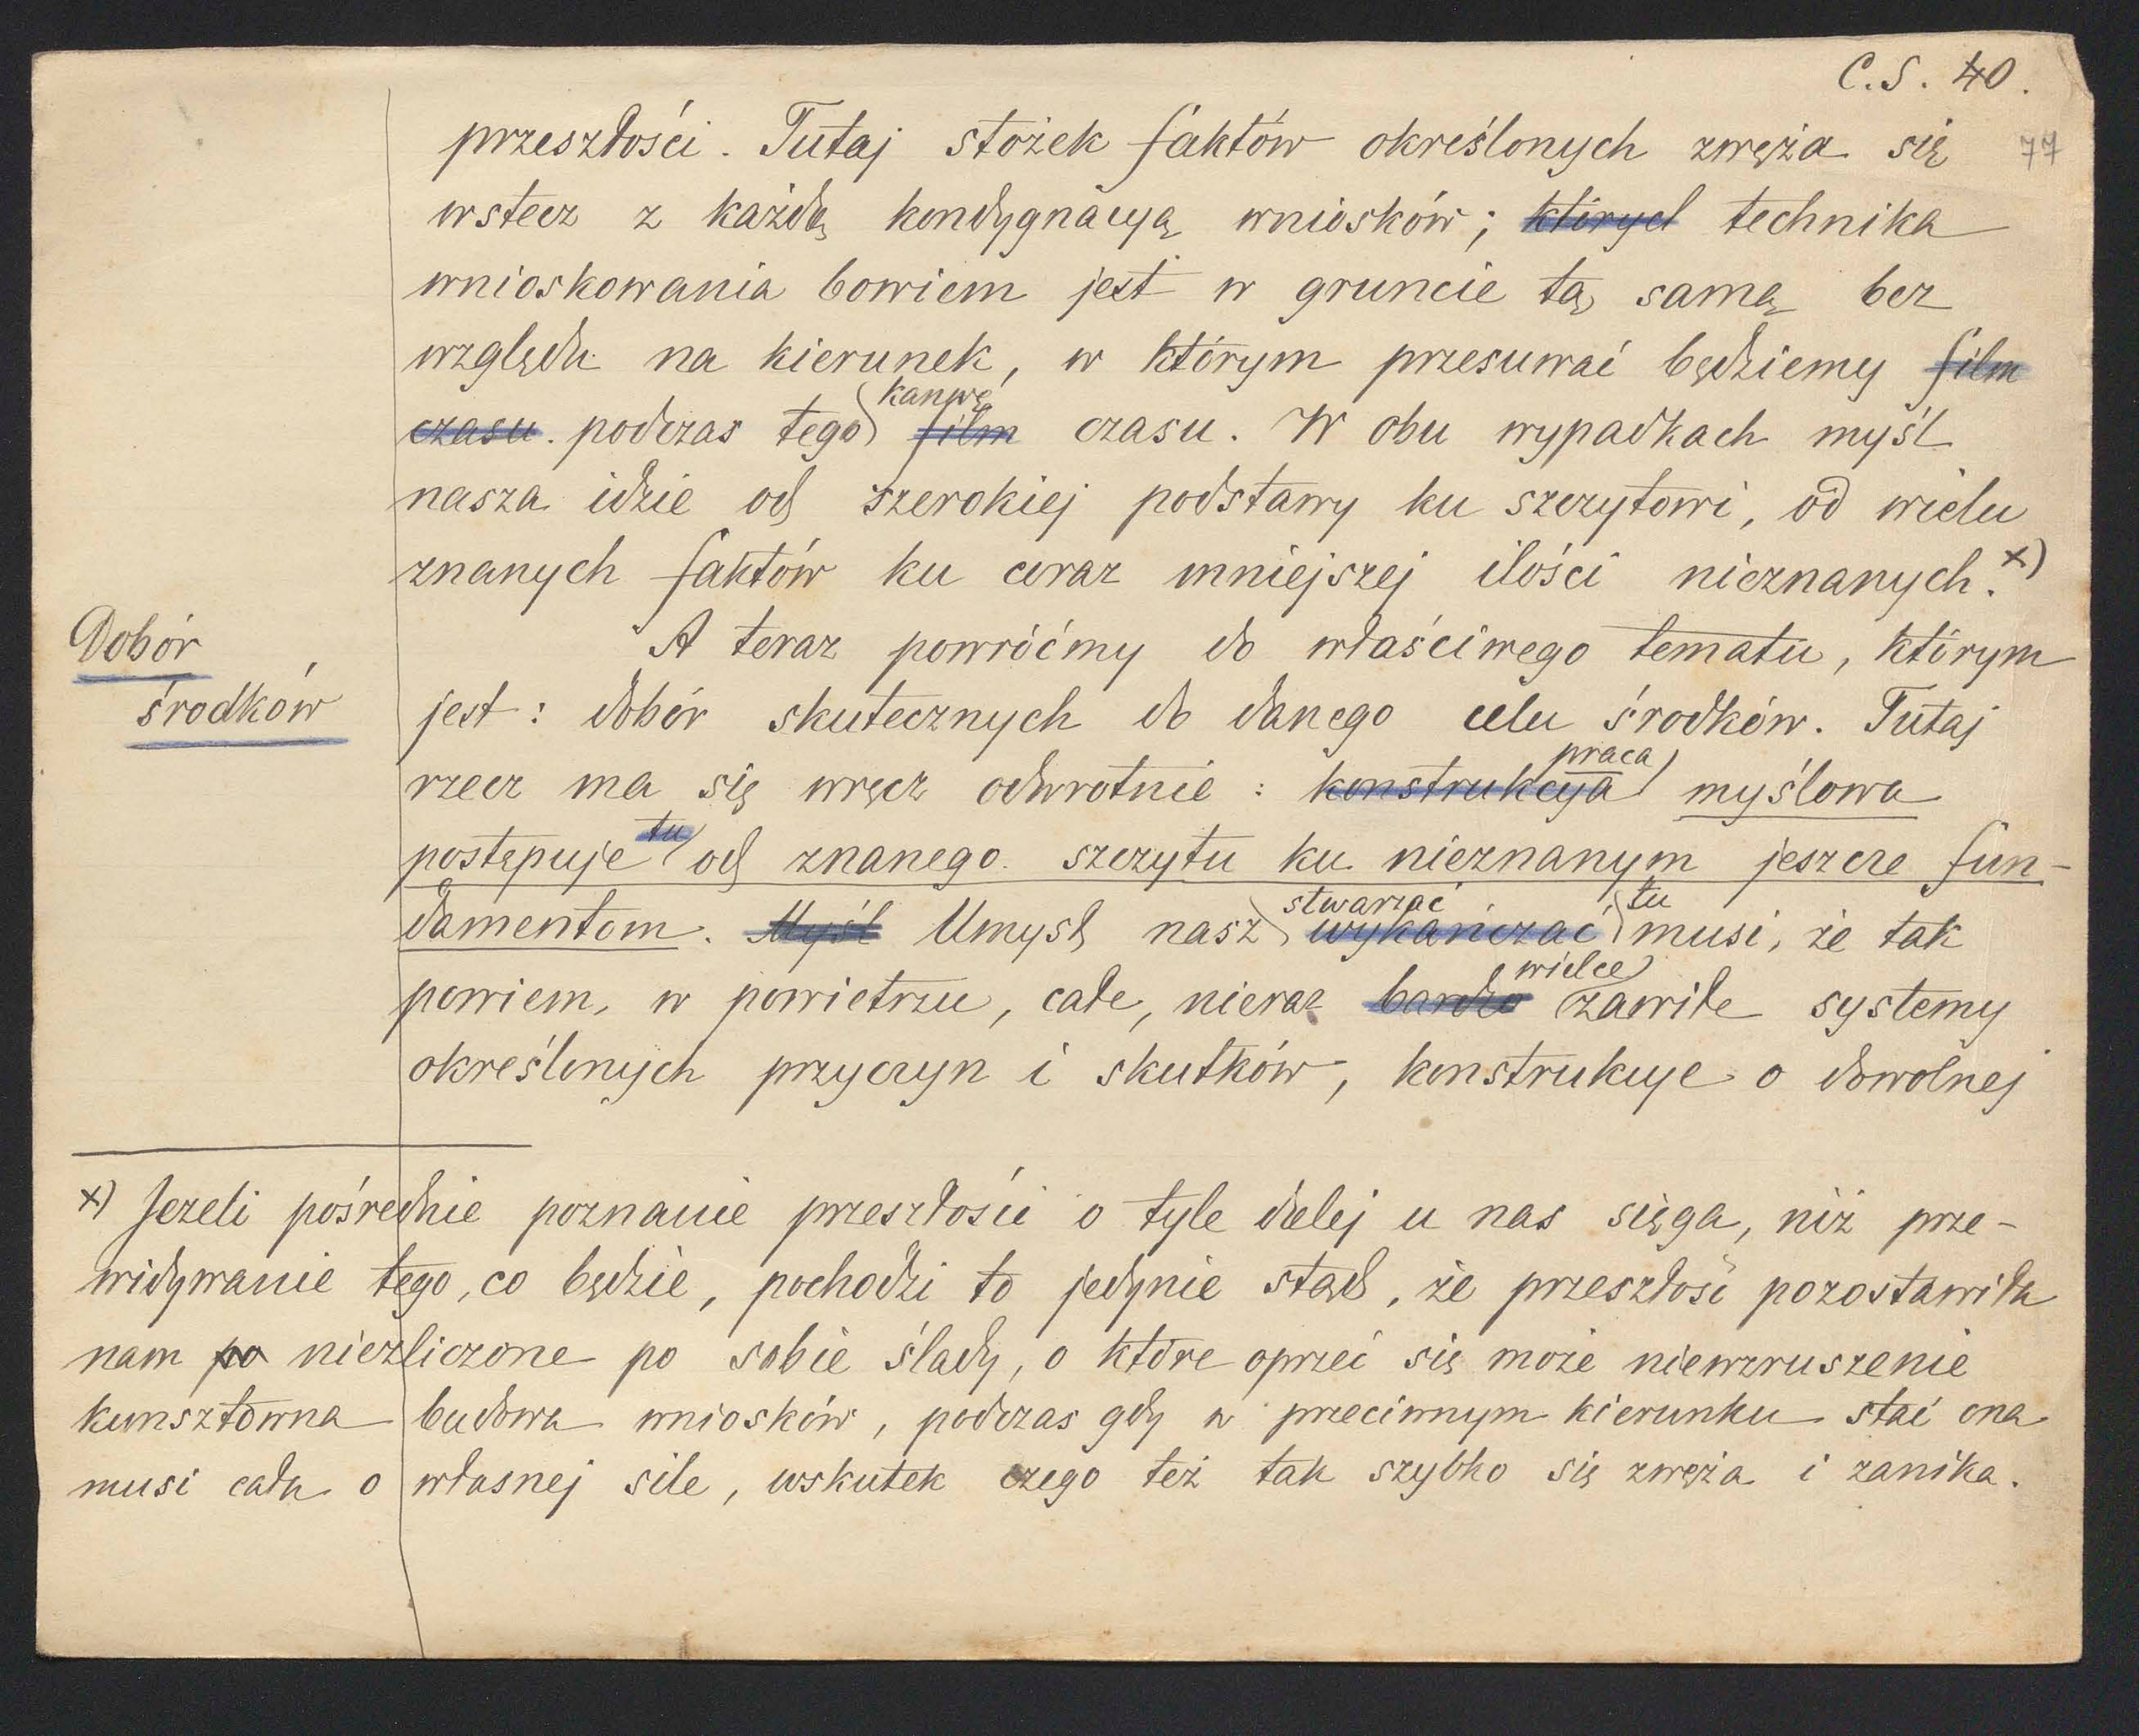 C.S. 40.
77
przeszłości. Tutaj stożek faktów określonych zwęża się
wstecz z każdą kondygnacyą wniosków; których technika
wnioskowania bowiem jest w gruncie tą samą bez
względu na kierunek, w którym przesuwać będziemy film
czasu. podczas tego kanwę film czasu. W obu wypadkach myśl
nasza idzie od szerokiej podstawy ku szczytowi, od wielu
znanych faktów ku coraz mniejszej ilości nieznanych.x)
Dobór
środków
A teraz powróćmy do właściwego tematu, którym
jest: dobór skutecznych do danego celu środków. Tutaj
rzecz ma się wręcz odwrotnie: konstrukcya praca myślowa
postępuje tu od znanego szczytu ku nieznanym jeszcze fun-
damentom. Myśl Umysł nasz stwarzać wykańczać tu musi, że tak
powiem, w powietrzu, całe, nieraz bardzo wielce zawiłe systemy
określonych przyczyn i skutków, konstrukcye o dowolnej
x) Jeżeli pośrednie poznanie przeszłości o tyle dalej u nas sięga, niż prze-
widywanie tego, co będzie, pochodzi to jedynie stąd, że przeszłość pozostawiła
nam po niezliczone po sobie ślady, o które oprzeć się może niewzruszenie
kunsztowna budowa wniosków, podczas gdy w przeciwnym kierunku stać ona
musi cała o własnej sile, wskutek czego też tak szybko się zwęża i zanika.